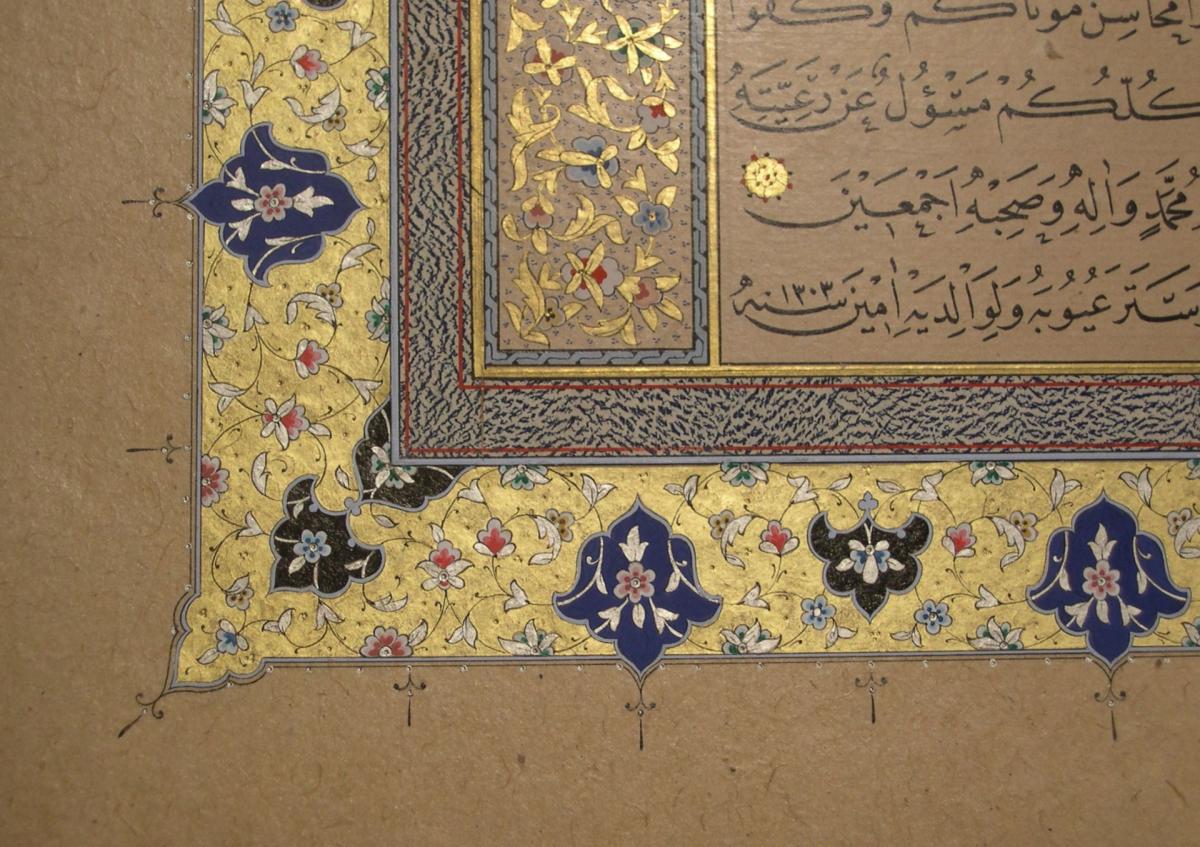 محاسن موتاكم وكفوا
كُلُّكُمْ مَسْؤُلٌ عَنْ رَعِيَّتِهِ
مُحَمَّدٍ وَاٰلِهِ وَصَحْبِهِ اَجْمَعِينَ
سَتَرَ عُيُوبَهُ وَلِوَالِدَيْهِ اٰمِينَ سنه ١٣٠٣